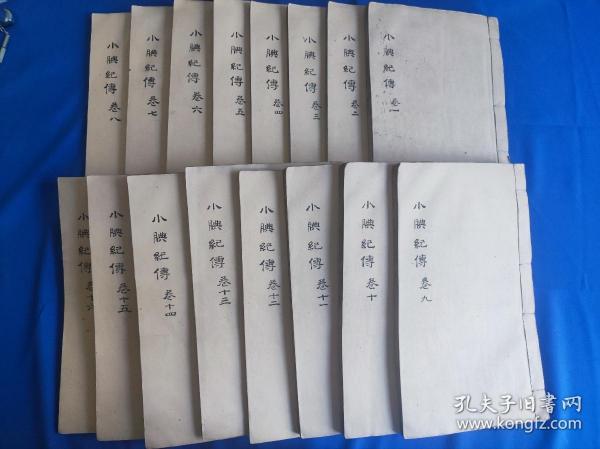 小腆紀傳 卷一
小腆紀傳 卷二
小腆紀傳 卷三
小腆紀傳 卷四
小腆紀傳 卷五
小腆紀傳 卷六
小腆紀傳 卷七
小腆紀傳 卷八
小腆紀傳 卷九
小腆紀傳 卷十
小腆紀傳 卷十一
小腆紀傳 卷十二
小腆紀傳 卷十三
小腆紀傳 卷十四
小腆紀傳 卷十五
小腆紀傳 卷十六
孔夫子旧书网
www.kongfz.com